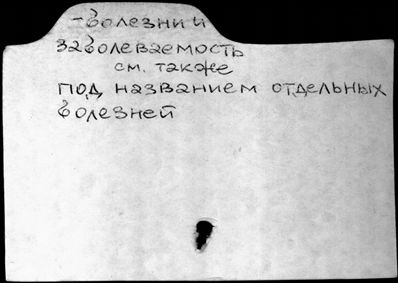 -Болезни и
заболеваемость
см. также
под названием отдельных
болезней